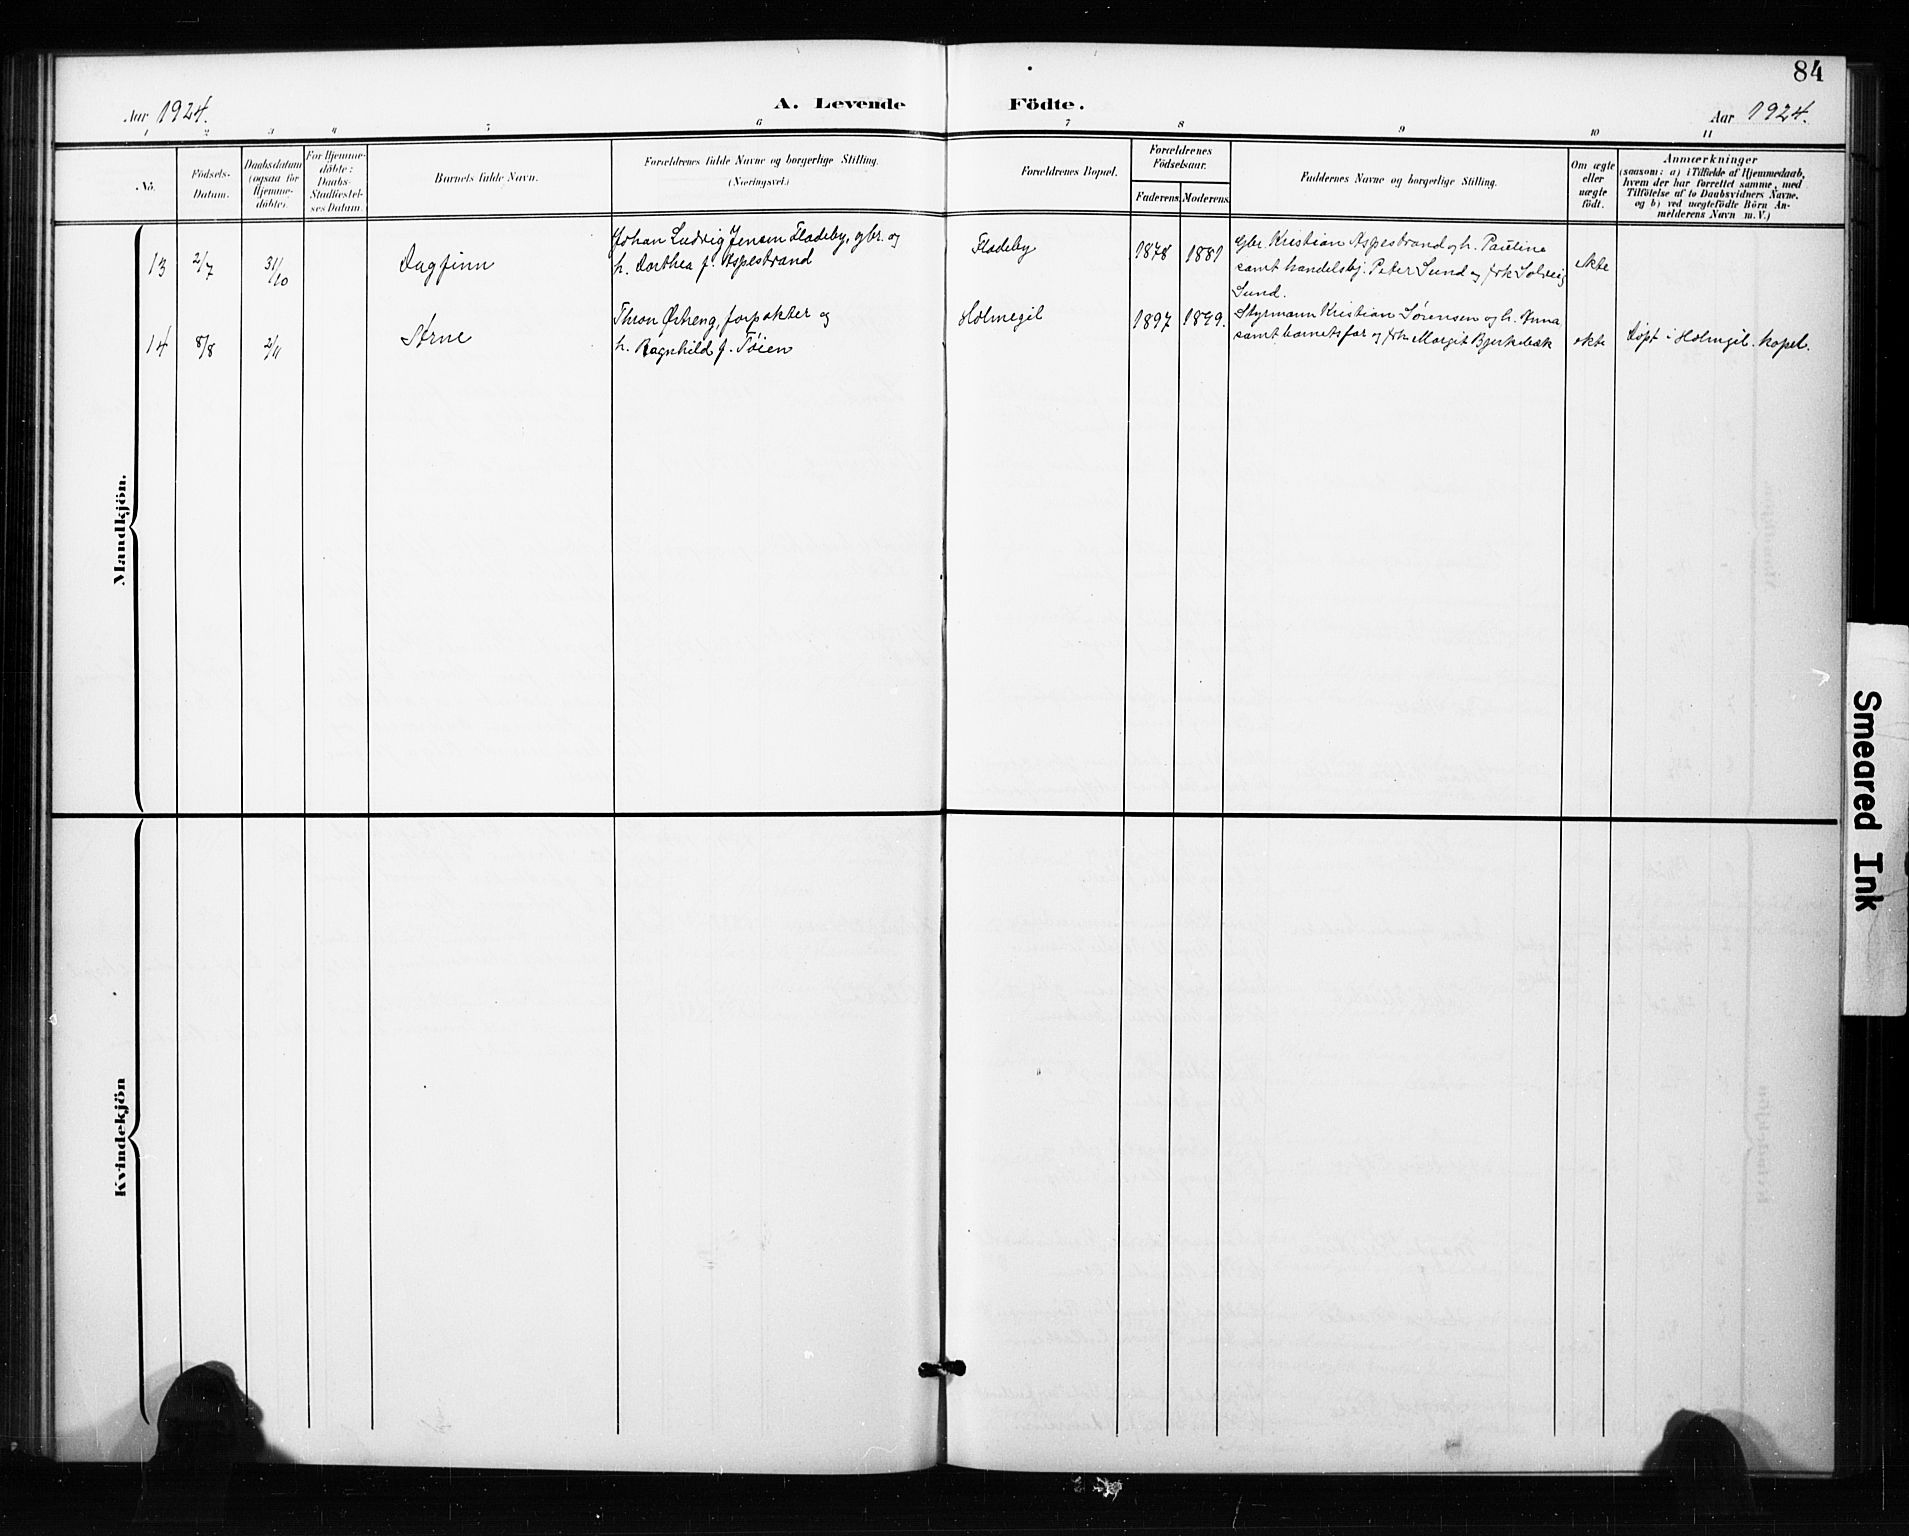 84
Aar 1924.
A. Levende Födte.
Aar 1924.
1 2 3 4 5 6 7 8 9 10 11
No.
Födsels-
Datum.
Daabsdatum
(ogsaa for
Hjemme-
döbte).
For Hjemme-
döbte:
Daabs-
Stadfæstel-
ses Datum.
Barnets fulde Navn.
Forældrenes fulde Navne og borgerlige Stilling.
(Næringsvei.)
Forældrenes Bopæl.
Forældrenes
Födselsaar.
Faderens.
Moderens.
Faddernes Navne og borgerlige Stilling.
Om ægte
eller
uægte
födt.
Anmærkninger
(saasom: a) i Tilfælde af Hjemmedaab,
hvem der har forrettet samme, med
Tilföielse af to Daabsvidners Navne,
og b) ved uægtefödte Börn An-
melderens Navn m. V.)
Mandkjön.
13
2/7
31/10
Dagfinn
Johan Ludvig Jensen Fladeby, gbr. og
h. Dorthea f. Aspestrand
Fladeby
1878
1881
Gbr. Kristian Aspestrand og h. Pauline
samt handelsbj. Peter Lund og frk Solveig
Lund.
ekte
14
8/8
2/11
Arne
Thron Østeng, forpakter og
h. Ragnhild f. Tøien
Holmegil
1897
1899.
Styrmann Kristian Sørensen og h. Anna
samt barnets far og frk. Margit Bjerkebæk
ekte
Døpt i Holmgil. kapel.
Kvindekjön
Smeared Ink